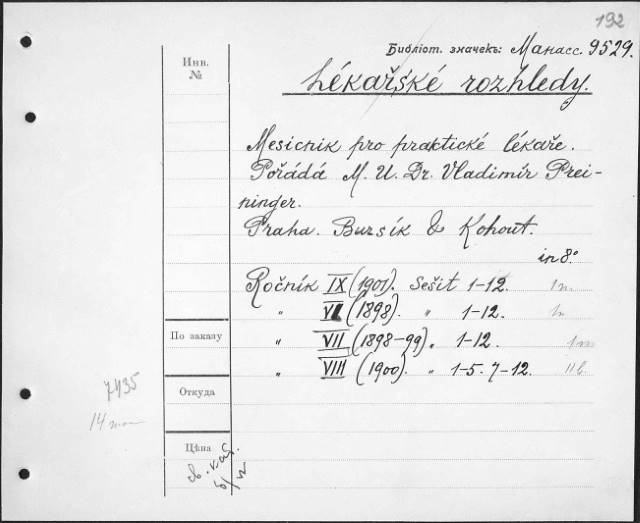 192
Библіот. значекъ: Манасс. 9529.
Инв.
№
Lékařské rozhledy.
Mesicnik pro praktické lékaře.
Pořádá M. U. Dr. Vladimír Prei-
ninger.
Praha. Bursík & Kohout.
in 8º
Ročník IX (1901). Sešit 1-12.
" VI (1898). " 1-12.
По заказу
" VII (1898-99). " 1-12.
" VIII (1900). " 1-5. 7-12.
7435
Откуда
14
Цѣна